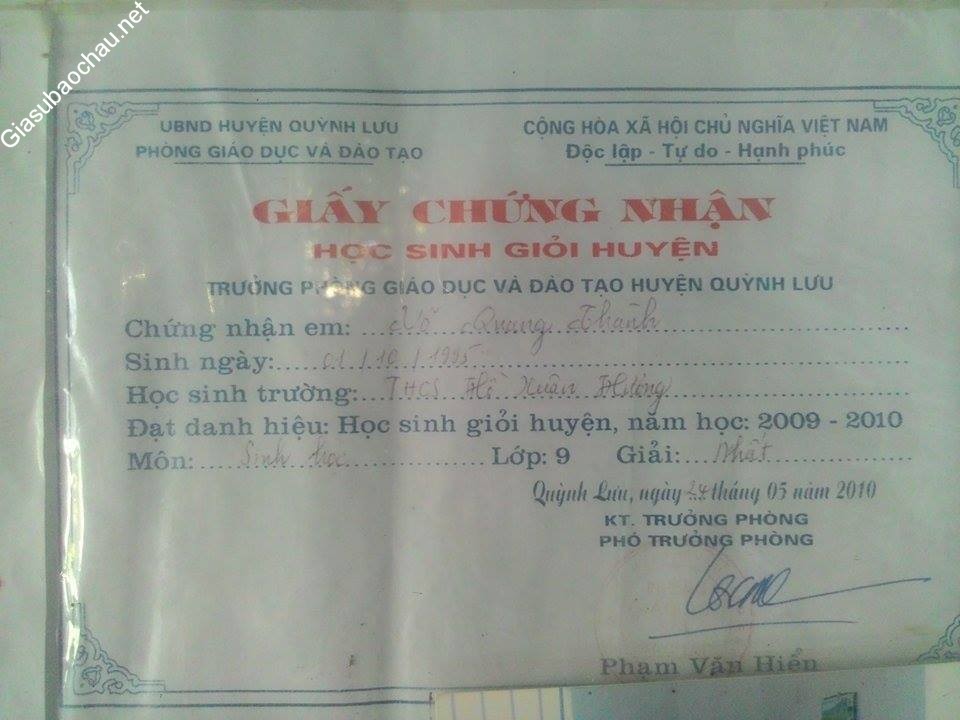 Giasubaochau.net
UBND HUYỆN QUỲNH LƯU
PHÒNG GIÁO DỤC VÀ ĐÀO TẠO
CỘNG HÒA XÃ HỘI CHỦ NGHĨA VIỆT NAM
Độc lập - Tự do - Hạnh phúc
GIẤY CHỨNG NHẬN
HỌC SINH GIỎI HUYỆN
TRƯỞNG PHÒNG GIÁO DỤC VÀ ĐÀO TẠO HUYỆN QUỲNH LƯU
Chứng nhận em: Võ Quang Thành
Sinh ngày: 01/10/1995
Học sinh trường: THCS Hồ Xuân Hương
Đạt danh hiệu: Học sinh giỏi huyện, năm học: 2009 - 2010
Môn: Sinh học Lớp: 9 Giải: Nhất
Quỳnh Lưu, ngày 24 tháng 05 năm 2010
KT. TRƯỞNG PHÒNG
PHÓ TRƯỞNG PHÒNG
Phạm Văn Hiển